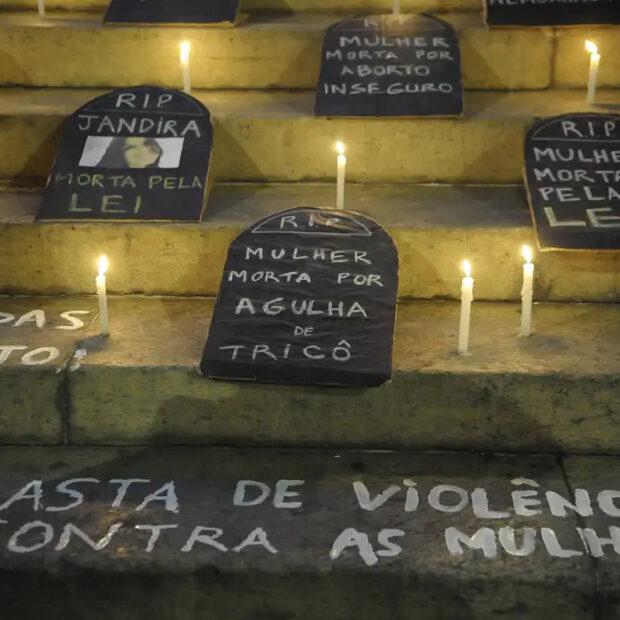 RIP
MULHER
MORTA POR
ABORTO
INSEGURO
RIP
JANDIRA
MORTA PELA
LEI
RIP
MULHE
MORTA
PELA
LE
RIP
MULHER
MORTA POR
AGULHA
DE
TRICÔ
DAS
TO!
ASTA DE VIOLÊNC
CONTRA AS MULH